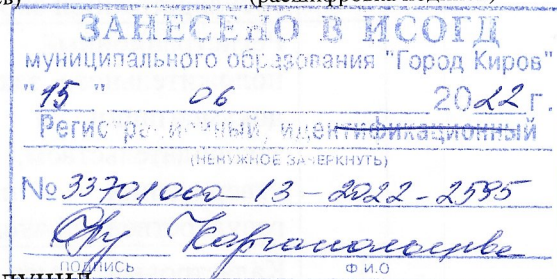 ЗАНЕСЕНО В ИСОГД
муниципального образования "Город Киров"
"15" 06 2022 г.
Регистрационный, идентификационный
(НЕНУЖНОЕ ЗАЧЕРКНУТЬ)
№ 33701000-13-2022-2595
ПОДПИСЬ Ф И.О